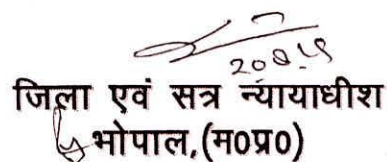 जिला एवं सत्र न्यायाधीश
भोपाल,(म0प्र0)